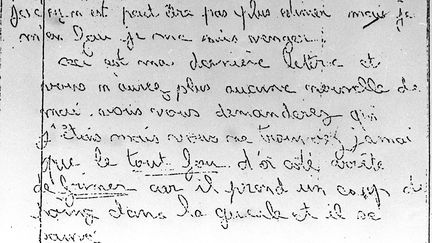 est peut être pas plus malin mais je
m'en fou je me suis venger.
ceci est ma dernière lettre et
vous n'aurez plus aucune nouvelle de
moi. vous vous demanderez qui
j'étais mais vous ne trouverez jamai
que le tout fou d'a coté boite
de car il prend un coup de
poing dans la gueule et il se